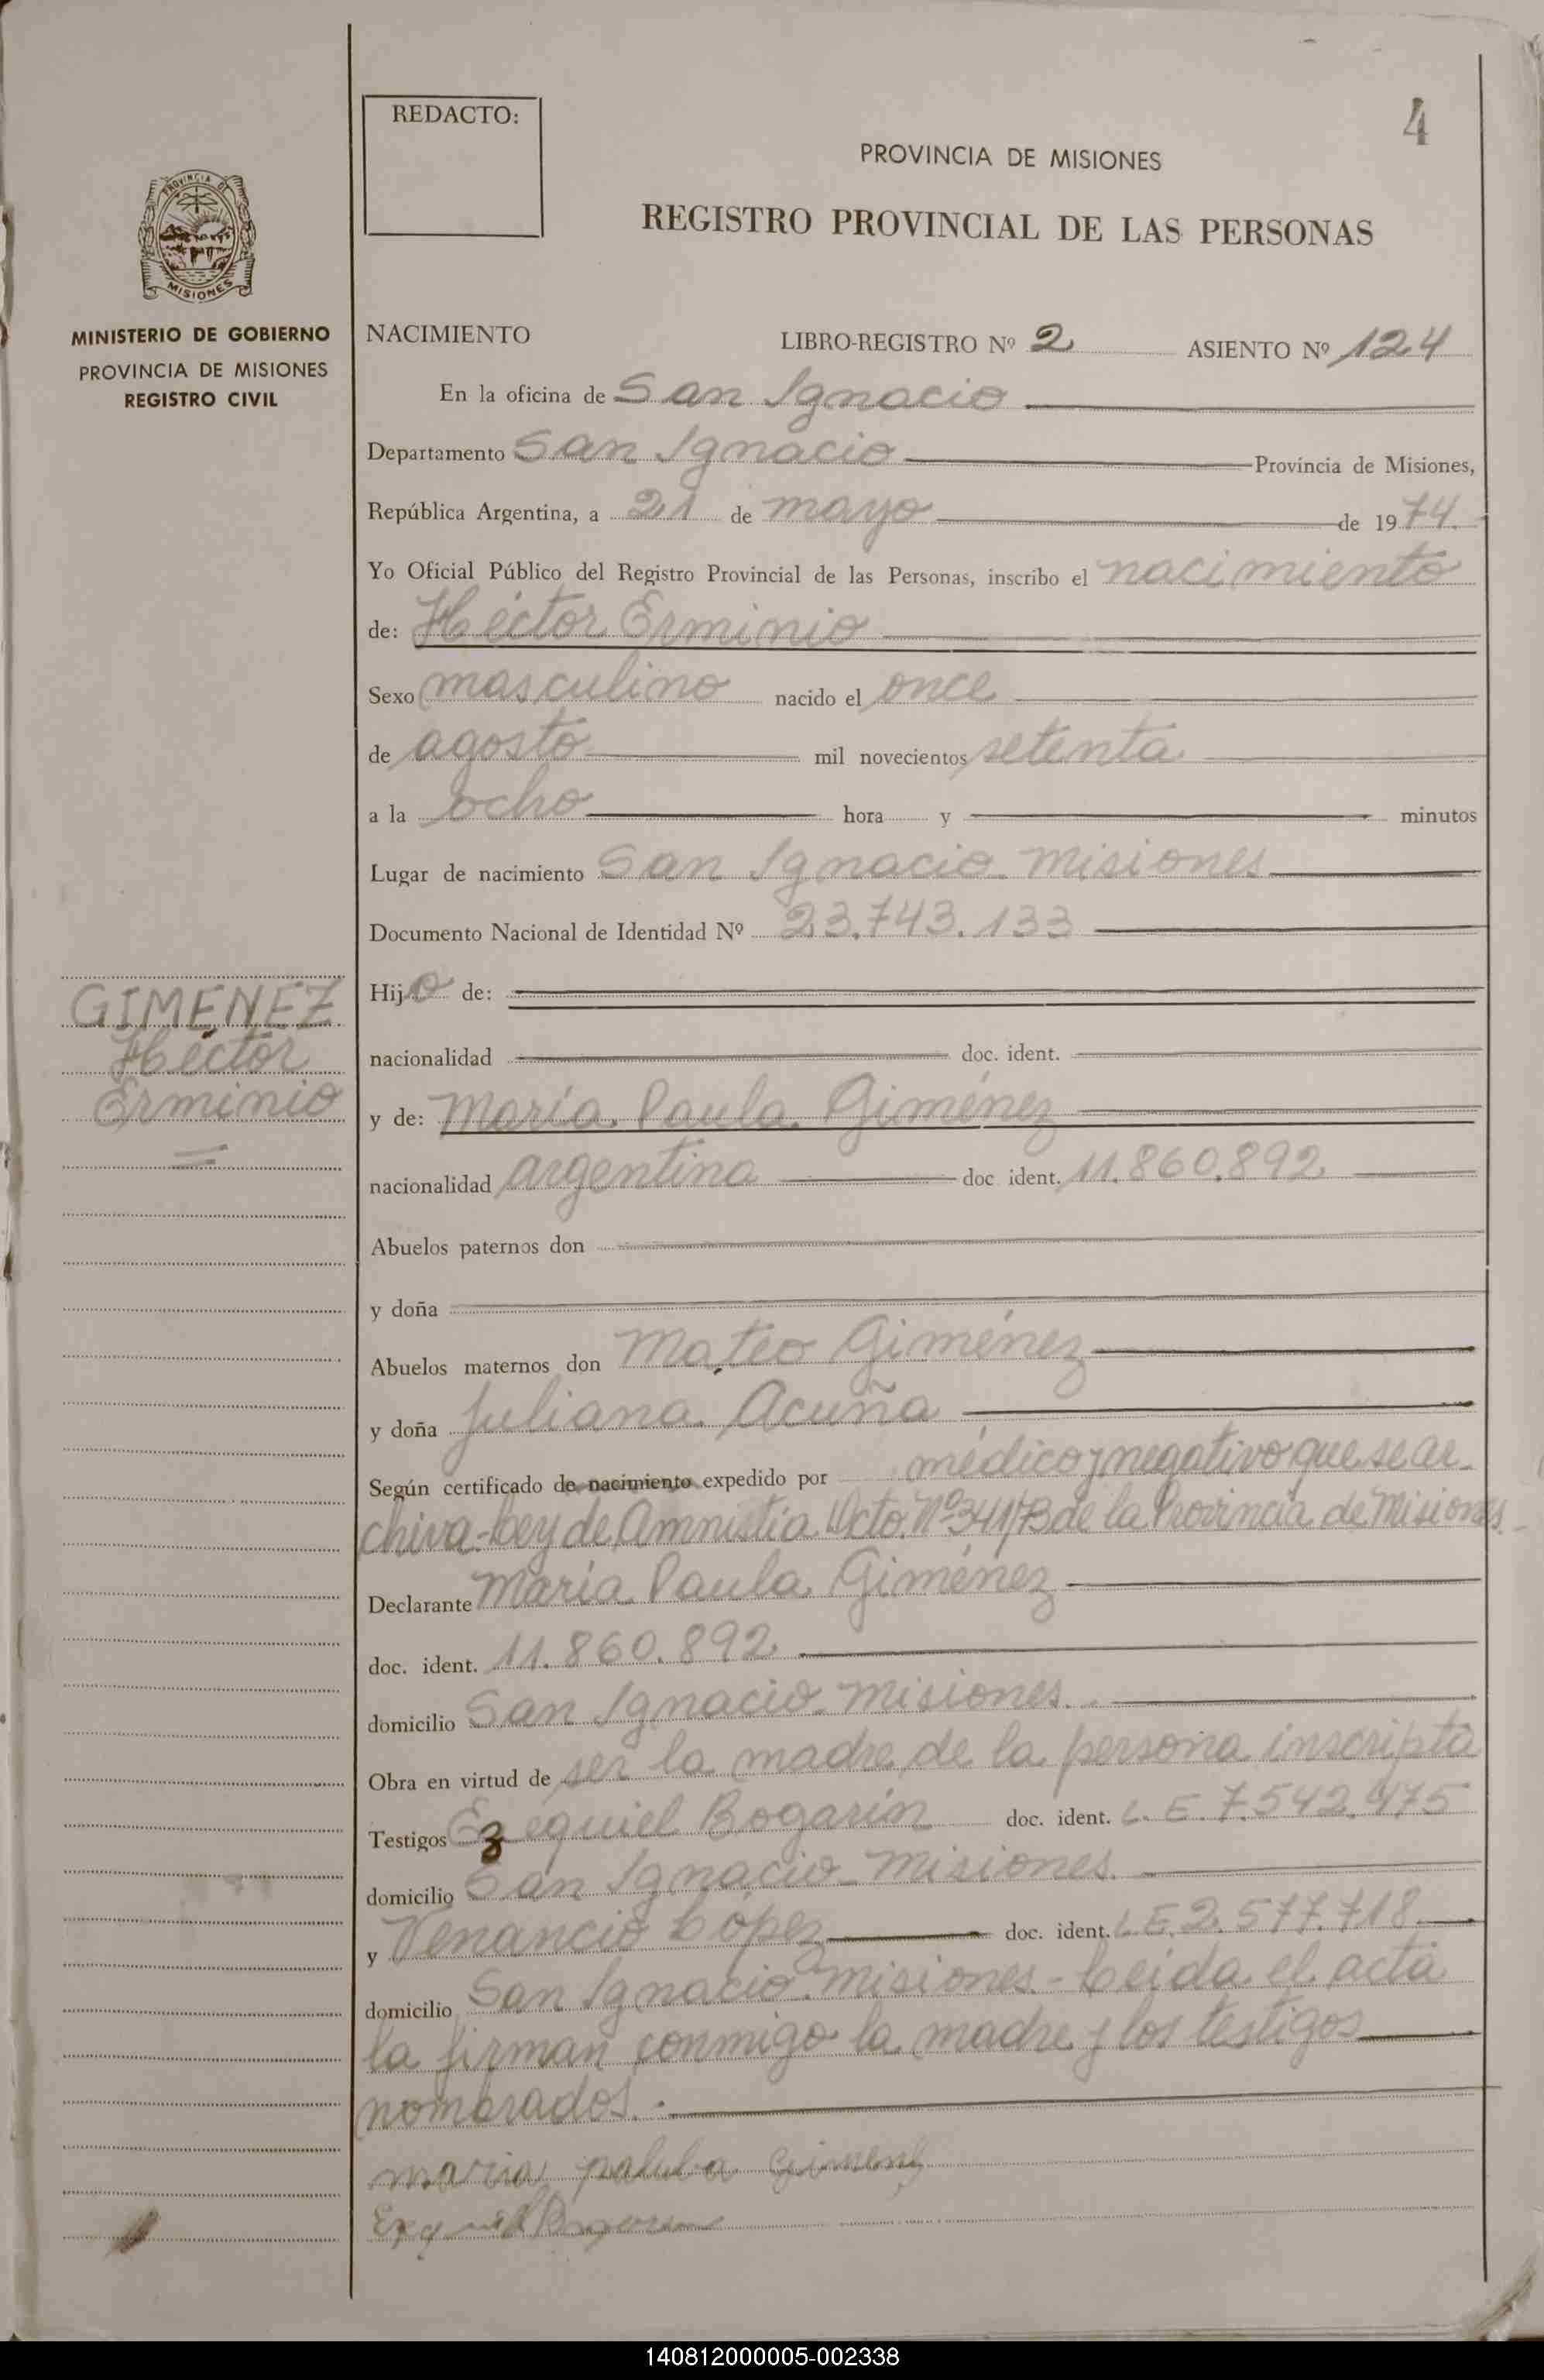 REDACTO:
4
PROVINCIA DE MISIONES
REGISTRO PROVINCIAL DE LAS PERSONAS
PROVINCIA DE
MISIONES
MINISTERIO DE GOBIERNO
PROVINCIA DE MISIONES
REGISTRO CIVIL
NACIMIENTO LIBRO-REGISTRO Nº 2 ASIENTO Nº 124
En la oficina de San Ignacio
Departamento San Ignacio Provincia de Misiones,
República Argentina, a 21 de mayo de 1974.
Yo Oficial Público del Registro Provincial de las Personas, inscribo el nacimiento
de: Héctor Erminio
Sexo masculino nacido el once
de agosto mil novecientos setenta
a la ocho hora y minutos
Lugar de nacimiento San Ignacio Misiones
Documento Nacional de Identidad Nº 23.743.133
GIMENEZ
Héctor
Erminio
Hijo de:
nacionalidad doc. ident.
y de: María Paula Giménez
nacionalidad argentina doc ident. 11.860.892
Abuelos paternos don
y doña
Abuelos maternos don Mateo Giménez
y doña Juliana Acuña
Según certificado de nacimiento expedido por médico y negativo que se ar-
chiva-Ley de Amnistía Dcto. Nº 341/73 de la Provincia de Misiones.
Declarante María Paula Giménez
doc. ident. 11.860.892
domicilio San Ignacio-Misiones.
Obra en virtud de ser la madre de la persona inscripta
Testigos Ezequiel Bogarín doc. ident. L.E. 7.542.475
domicilio San Ignacio-Misiones.
y Venancio López doc. ident. L.E. 2.577.718
domicilio San Ignacio-Misiones-Leida el acta
la firman conmigo la madre y los testigos
nombrados.
maria
140812000005-002338